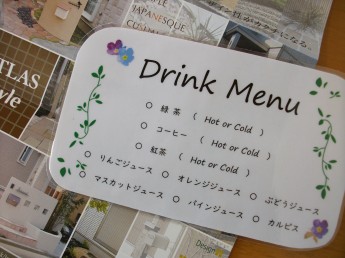 JAPANESQUE
がカタチになる。
ATLAS
Drink Menu
○ 緑茶 ( Hot or Cold )
○ コーヒー ( Hot or Cold )
○ 紅茶 ( Hot or Cold )
○ りんごジュース ○ オレンジジュース ○ ぶどうジュース
○ マスカットジュース ○ パインジュース ○ カルピス
Design